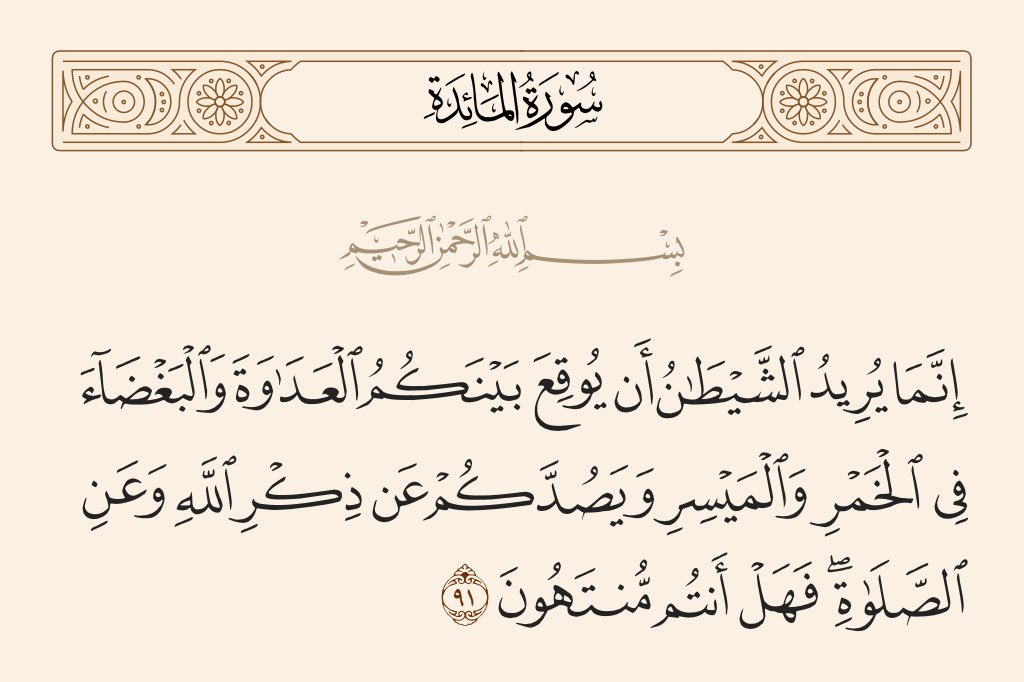 سُورَةُ المَائِدَةِ
بِسْمِ ٱللَّهِ ٱلرَّحْمَٰنِ ٱلرَّحِيمِ
إِنَّمَا يُرِيدُ ٱلشَّيْطَٰنُ أَن يُوقِعَ بَيْنَكُمُ ٱلْعَدَٰوَةَ وَٱلْبَغْضَآءَ
فِى ٱلْخَمْرِ وَٱلْمَيْسِرِ وَيَصُدَّكُمْ عَن ذِكْرِ ٱللَّهِ وَعَنِ
ٱلصَّلَوٰةِ ۖ فَهَلْ أَنتُم مُّنتَهُونَ ٩١